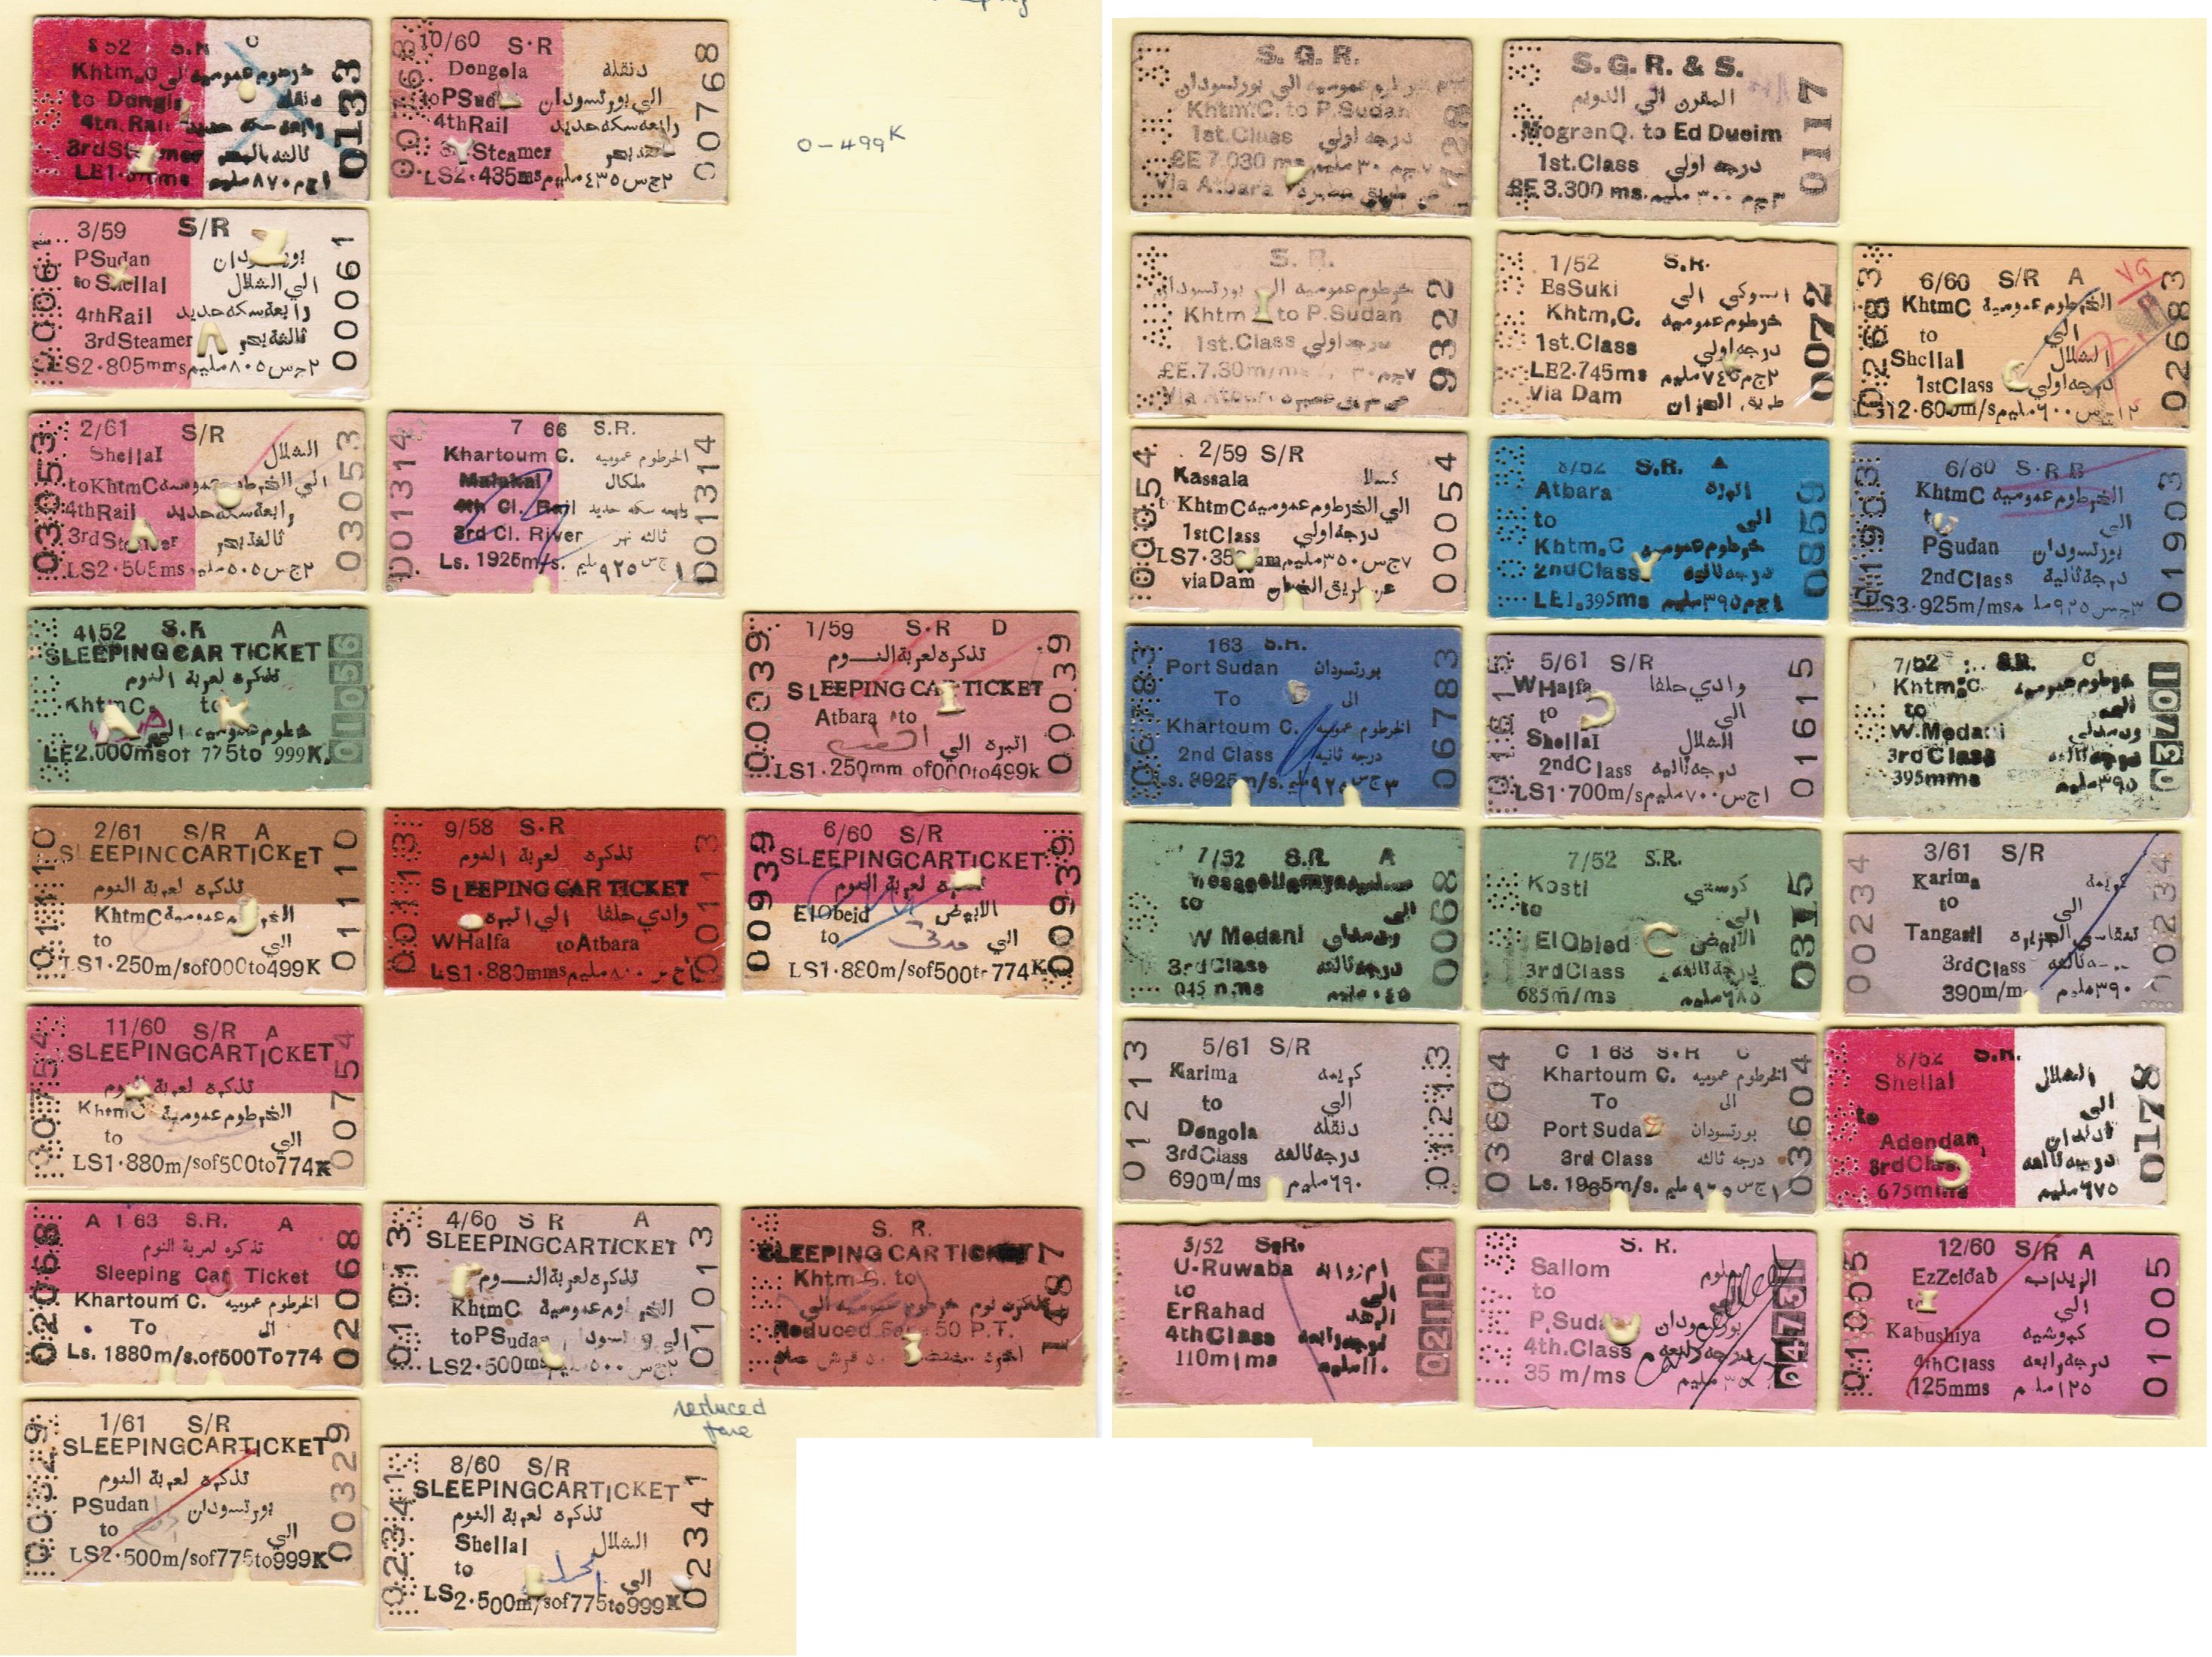 S.R C
Khtm.C خرطوم عموميه الي
to دنقله
4th.Rail رابعه سكه حديد
3rd Steamer ثالثه بالبحر
٨٧٠ مليم
0133
10/60 S·R
Dongola دنقله
to PSud الي بورتسودان
4thRail رابعه سكه حديد
Steamer
LS2·435ms ٢ج س ٤٣٥ مليم
00768
0-499K
3/59 S/R
PSudan
to Shellal الي الشلال
4thRail رابعه سكه حديد
3rdSteamer ثالثه بحر
LS2·805mms ٢ج س ٨٠٥ مليم
00061
2/61 S/R
Shellal الشلال
to KhtmC
4thRail رابعه سكه حديد
3rd ثالثه بحر
LS2·505ms ٢ج س ٥٠٥ مليم
03053
7 66 S.R.
Khartoum C. الخرطوم عموميه
Malakal ملكال
4th Cl. Rail رابعه سكه حديد
3rd Cl. River ثالثه نهر
Ls. 1925m/s. ١ج س ٩٢٥ مليم
001314
4/52 S.R A
SLEEPING CAR TICKET
تذكره لعربة النوم
KhtmC. to
LE2.000ms of 775to 999K.
01056
1/59 S·R D
تذكره لعربة النــوم
SLEEPING CAR TICKET
Atbara to
اتبره الي
LS1·250mm of000to499k
00039
2/61 S/R A
SLEEPINGCARTICKET
تذكره لعربة النوم
KhtmC الخرطوم عموميه
to الي
LS1·250m/sof000to499K
01110
9/58 S·R
تذكره لعربة النوم
SLEEPING CAR TICKET
وادي حلفا الي اتبره
WHalfa to Atbara
LS1·880mms
00113
6/60 S/R
SLEEPINGCARTICKET
تذكره لعربة النوم
ElObeid الابيض
to الي
LS1·880m/sof500to774K
00939
11/60 S/R A
SLEEPINGCARTICKET
تذكره لعربة النوم
KhtmC الخرطوم عموميه
to الي
LS1·880m/sof500to774K
00754
A 1 63 S.R. A
تذكرة لعربة النوم
Sleeping Car Ticket
Khartoum C. الخرطوم عموميه
To الى
Ls. 1880m/s.of500To774
02068
4/60 S R A
SLEEPINGCARTICKET
تذكره لعربة النــوم
KhtmC الخرطوم عموميه
to PSudan
LS2·500ms
01013
S. R.
SLEEPING CAR TICKET
Khtm.C. to
Reduced Fare 50 P.T.
1487
reduced
fare
1/61 S/R
SLEEPINGCARTICKET
تذكره لعربة النوم
PSudan بورتسودان
to الي
LS2·500m/sof775to999K
00329
8/60 S/R
SLEEPINGCARTICKET
تذكره لعربة النوم
Shellal الشلال
to الي
LS2·500m/sof775to999K
02341
S. G. R.
خرطوم عموميه الي بورتسودان
Khtm.C. to P.Sudan
1st.Class درجه اولي
£E 7.030 ms
Via Atbara
S. G. R. & S.
المقرن الي الدويم
MogrenQ. to Ed Dueim
1st.Class درجه اولي
£E 3.300 ms. ٣ج م ٣٠٠ مليم
0117
S. R.
خرطوم عموميه الي بورتسودان
Khtm to P.Sudan
1st.Class درجه اولي
£E.7.30m/ms
Via Atbara
9322
1/52 S.R.
EsSuki السوكي الي
Khtm,C. خرطوم عموميه
1st.Class درجه اولي
LE2.745ms ٢ج م ٧٤٥ مليم
Via Dam طريق الخزان
0072
6/60 S/R A
VG
KhtmC الخرطوم عموميه
to الي
Shellal الشلال
1stClass درجه اولي
12·600m/s ١٢ج س ٦٠٠ مليم
02683
2/59 S/R
Kassala كسلا
to KhtmC الي الخرطوم عموميه
1stClass درجه اولي
LS7·35 ٧ج س ٣٥٠ مليم
viaDam عن طريق الخزان
00054
8/52 S.R. A
Atbara اتبره
to الي
Khtm.C خرطوم عموميه
2ndClass درجه ثانيه
LE1.395ms ١ج م ٣٩٥ مليم
0859
6/60 S·R B
KhtmC الخرطوم عموميه
الي
PSudan بورتسودان
2ndClass درجه ثانية
LS3·925m/ms ٣ج س ٩٢٥
01903
163 S.R.
Port Sudan بورتسودان
To الى
Khartoum C. الخرطوم عموميه
2nd Class درجه ثانيه
Ls. 3925m/s. ٣ج س ٩٢٥
06783
5/61 S/R
WHalfa وادي حلفا
to الي
Shellal الشلال
2ndClass درجه ثانيه
LS1·700m/s ١ج س ٧٠٠ مليم
01615
7/52 S.R. C
Khtm.C خرطوم عموميه
to الي
W.Medani ود مدني
3rdClass درجه ثالثه
395mms ٣٩٥ مليم
03701
7/52 S.R. A
to الي
W Medani ود مدني
3rdClass درجه ثالثه
045 ٠٤٥ مليم
0068
7/52 S.R.
Kosti كوستي
to الي
ElObied الابيض
3rdClass درجه ثالثه
685m/ms ٦٨٥ مليم
0315
3/61 S/R
Karima كريمه
to الي
Tangasil تنقاسي الجزيره
3rdClass
390m/m ٣٩٠ مليم
00234
5/61 S/R
Karima كريمه
to الي
Dongola دنقله
3rdClass درجه ثالثه
690m/ms ٦٩٠ مليم
01213
C 1 63 S.R C
Khartoum C. الخرطوم عموميه
To الى
Port Sudan بورتسودان
3rd Class درجه ثالثه
Ls. 1965m/s.
03604
8/52 S.R.
Shellal الشلال
to الي
Adendan ادندان
3rdClass درجه ثالثه
675mms ٦٧٥ مليم
0178
5/52 S.R.
U-Ruwaba ام روابه
to الي
ErRahad الرهد
4thClass درجه رابعه
110m/ms ١١٠ مليم
02114
S. R.
Sallom سلوم
to
P.Sudan بورتسودان
4th.Class درجه رابعه
35 m/ms ٣٥ مليم
Cancelled
04731
12/60 S/R A
EzZeidab الزيداب
to الي
Kabushiya كبوشيه
4thClass درجه رابعه
125mms ١٢٥ مليم
01005